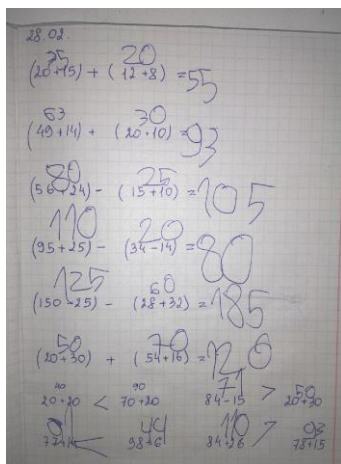 28.02.
35 20
(20+15) + (12+8) = 55
63 30
(49+14) + (20+10) = 93
80 25
(56+24) - (15+10) = 105
110 20
(95+25) - (34-14) = 80
125 60
(150-25) - (28+32) = 185
50 70
(20+30) + (54+16) = 120
40 90 71 50
20+20 < 70+20 84-15 > 20+30
44 110 93
98+6 84+26 > 78+15